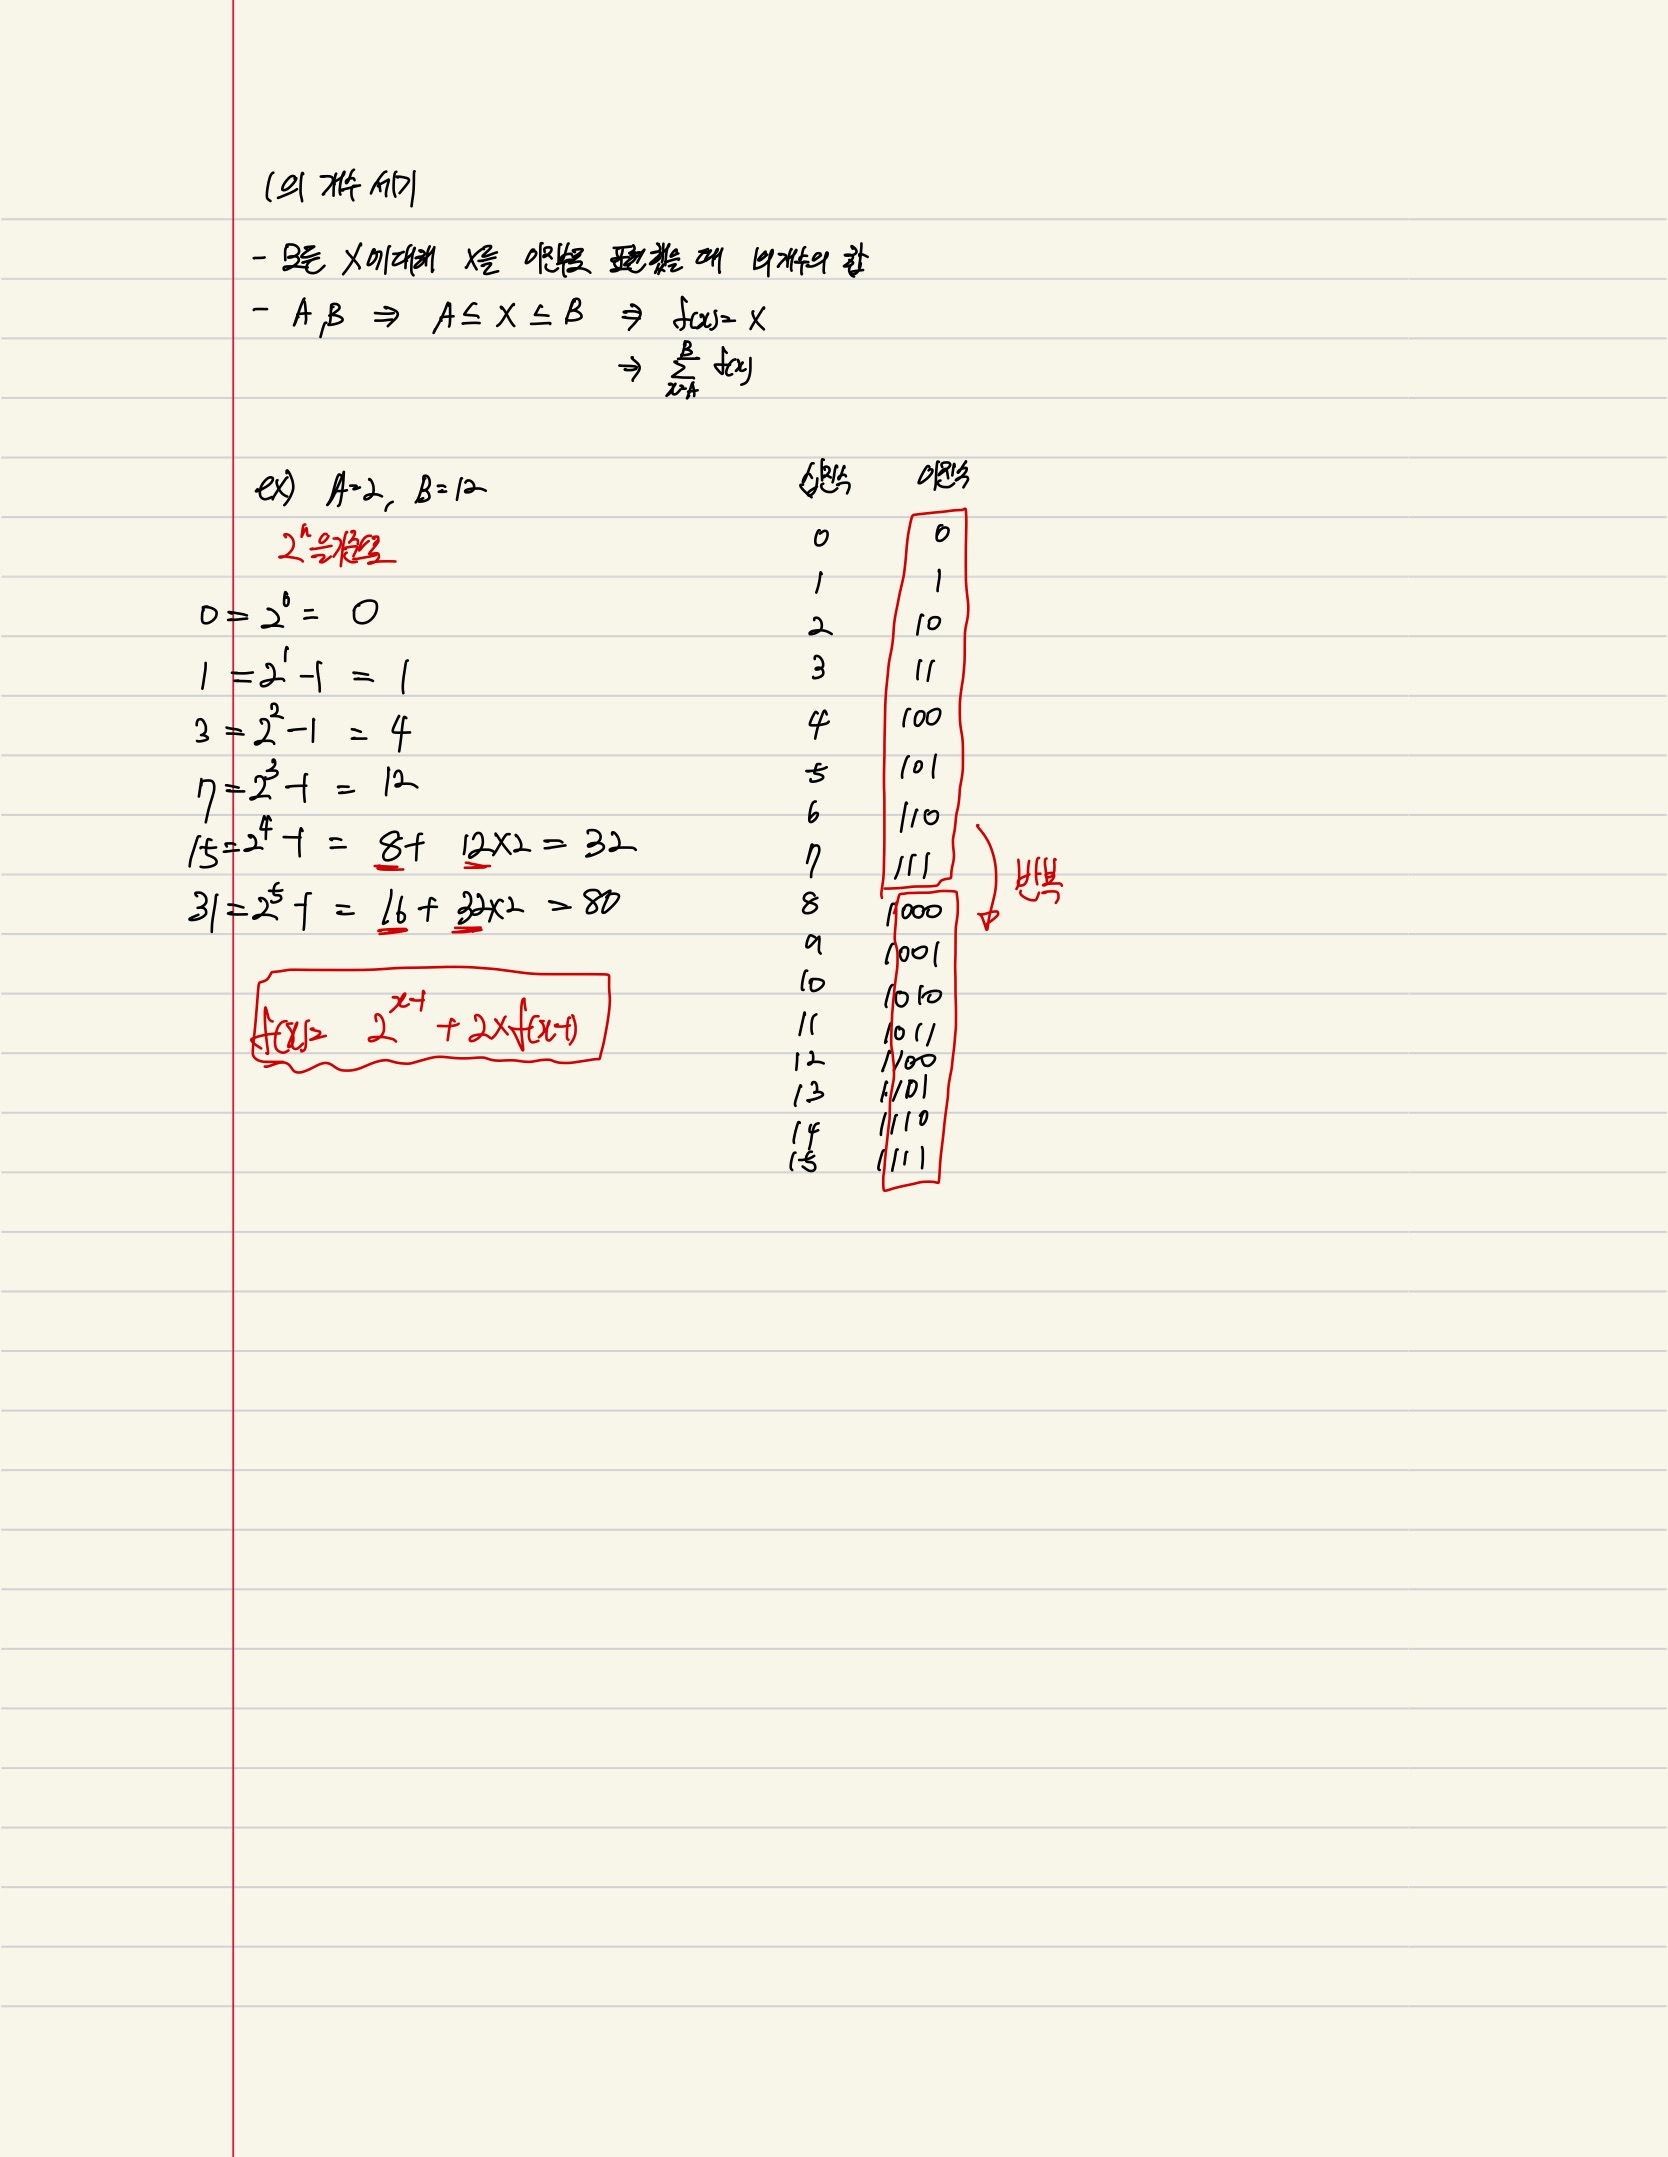 1의 개수 세기
- 모든 X에 대해 X를 이진수로 표현했을 때 1의 개수의 합
- A, B ⇒ A ≤ X ≤ B ⇒ f(x) = X
⇒ \sum_{x=A}^{B} f(x)
ex) A=2, B=12
2^n을 기준으로
0 = 2^0 = 0
1 = 2^1 -1 = 1
3 = 2^2 -1 = 4
7 = 2^3 -1 = 12
15 = 2^4 -1 = 8 + 12x2 = 32
31 = 2^5 -1 = 16 + 32x2 = 80
f(x) = 2^{x-1} + 2 x f(x-1)
십진수 이진수
0 0
1 1
2 10
3 11
4 100
5 101
6 110
7 111
반복
8 1000
9 1001
10 1010
11 1011
12 1100
13 1101
14 1110
15 1111